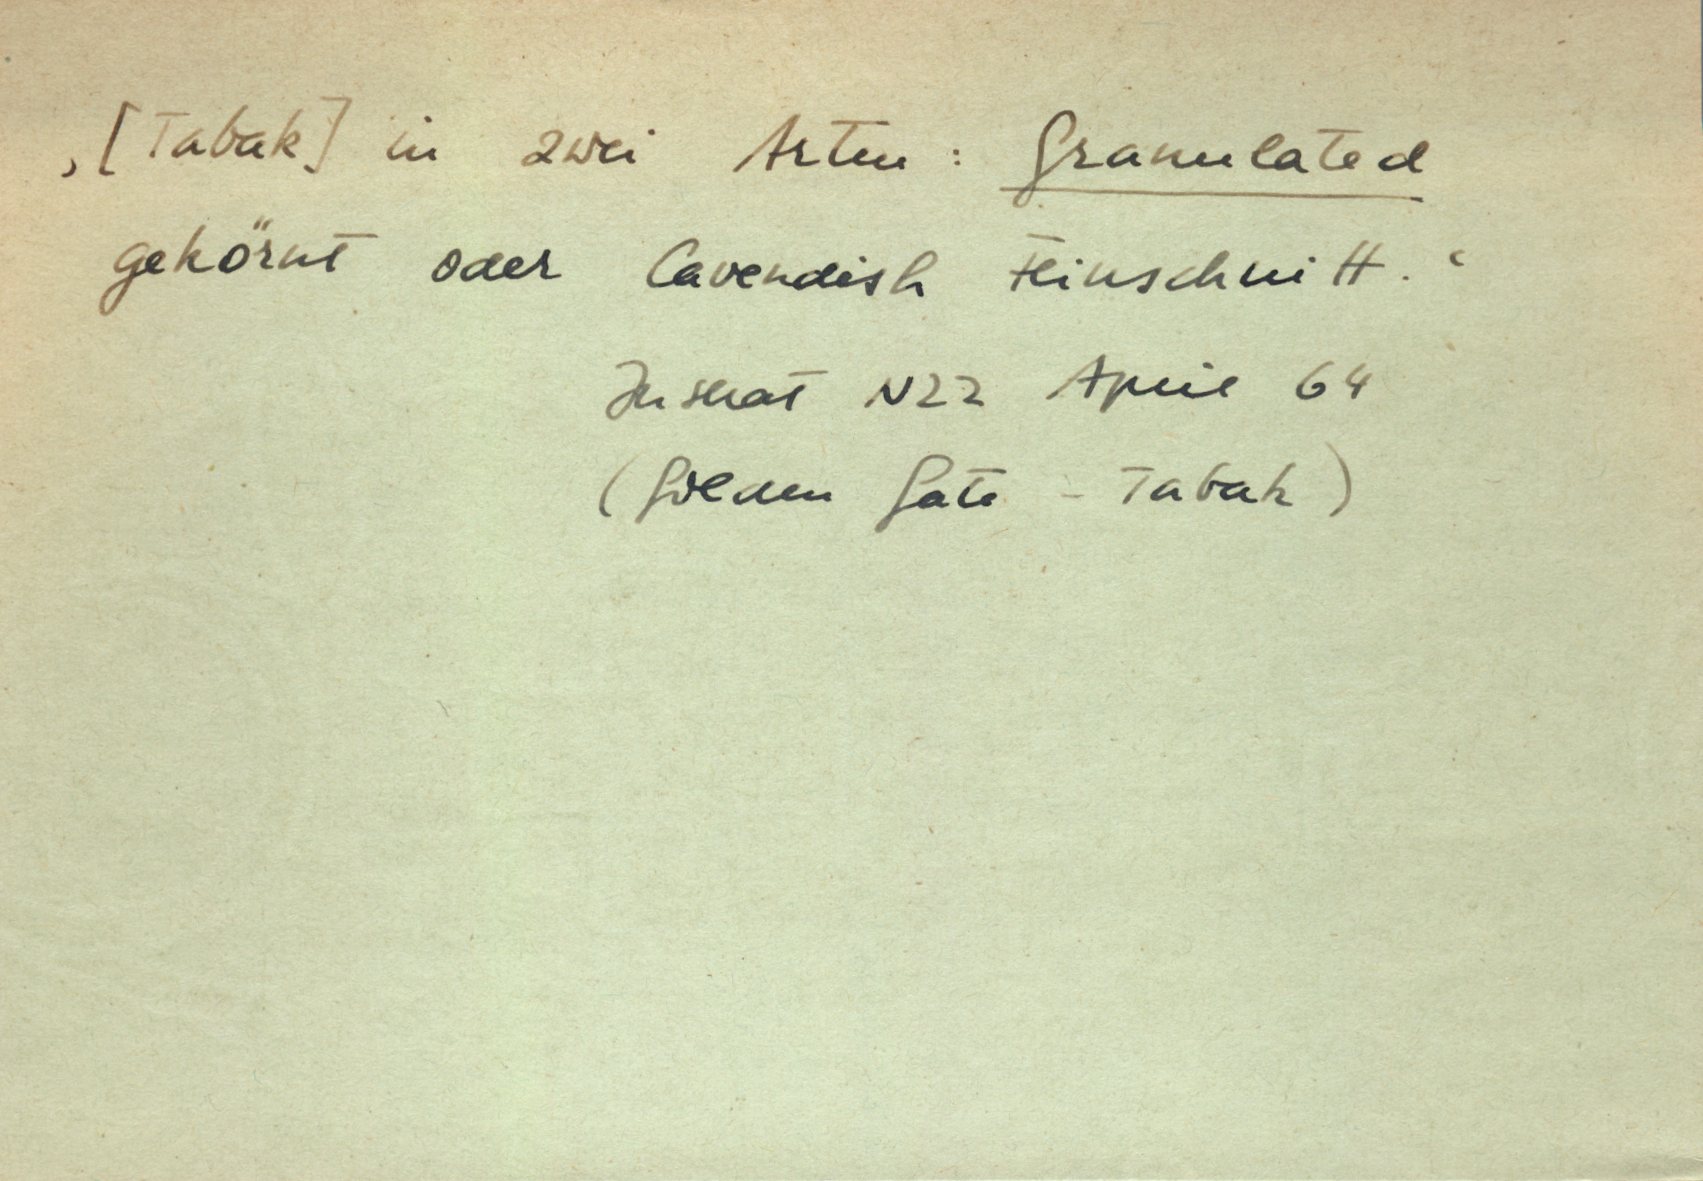 ‚[Tabak] in zwei Arten: Granulated
gekörnt oder Cavendish Feinschnitt.‘
Inserat NZZ April 64
(Golden Gate - Tabak)